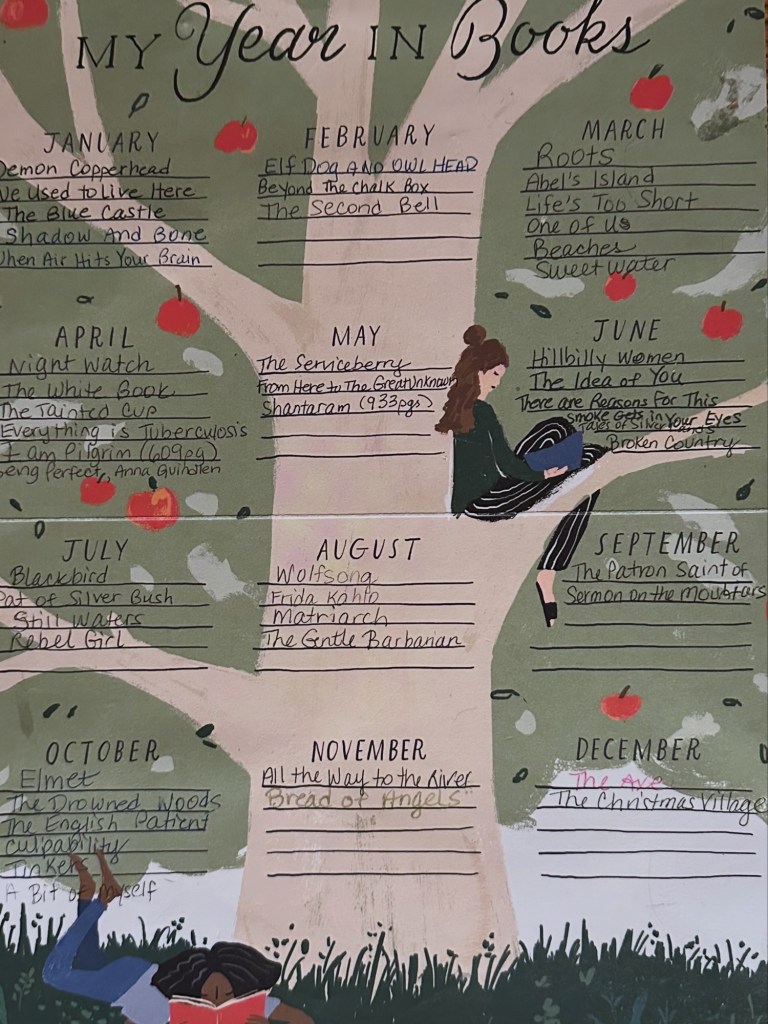 MY Year IN Books
JANUARY
Demon Copperhead
We Used to Live Here
The Blue Castle
Shadow And Bone
When Air Hits Your Brain
FEBRUARY
Elf Dog AND OWL HEAD
Beyond The Chalk Box
The Second Bell
MARCH
Roots
Abel's Island
Life's Too Short
One of Us
Beaches
Sweet Water
APRIL
Night Watch
The White Book
The Tainted Cup
Everything is Tuberculosis
I am Pilgrim (609pg)
Being Perfect, Anna Quindlen
MAY
The Serviceberry
From Here to The Great Unknown
Shantaram (933pgs)
JUNE
Hillbilly Women
The Idea of You
There are Reasons for This
Smoke Gets in Your Eyes
Tales of Silver
Broken Country
JULY
Blackbird
Pat of Silver Bush
Still Waters
Rebel Girl
AUGUST
Wolfsong
Frida Kahlo
Matriarch
The Gentle Barbarian
SEPTEMBER
The Patron Saint of
Sermon on the
OCTOBER
Elmet
The Drowned Woods
The English Patient
Culpability
Tinkers
A Bit of Myself
NOVEMBER
All the Way to the River
Bread of Angels
DECEMBER
The Ave
The Christmas Village